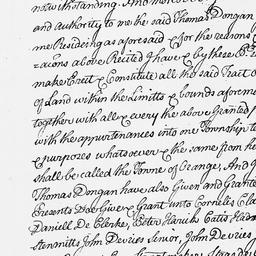 notwithstanding. And moreover
and authority to me the said Thomas Dongan
me Residing as aforesaid & for the reasons
-racons above Recited I have & by these
make Erect & Constitute all the said Tract
of Land within the Limitts & bounds aforemen
together with all & every the above Granted
with the appurtenances into one Township
& purposes whatsoever & the same from he
shall be called the Towne of Orange, And
Thomas Dongan have also Given and Grante
Presents Doe Give & Grant unto Cornelis Cla
Daniell De Clerke, Peter Harich
Stenmitts John Devries Senior, John Devries